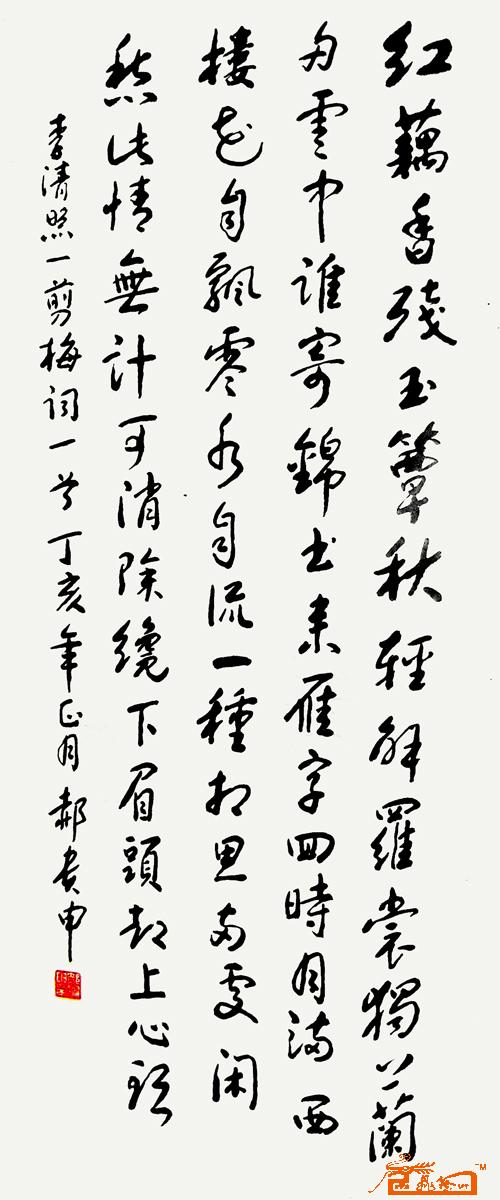 紅藕香殘玉簟秋輕解羅裳獨上蘭
舟雲中誰寄錦書來雁字回時月滿西
樓花自飄零水自流一種相思兩處閑
愁此情無計可消除纔下眉頭却上心頭
李清照一剪梅詞一首丁亥年正月郝貴申